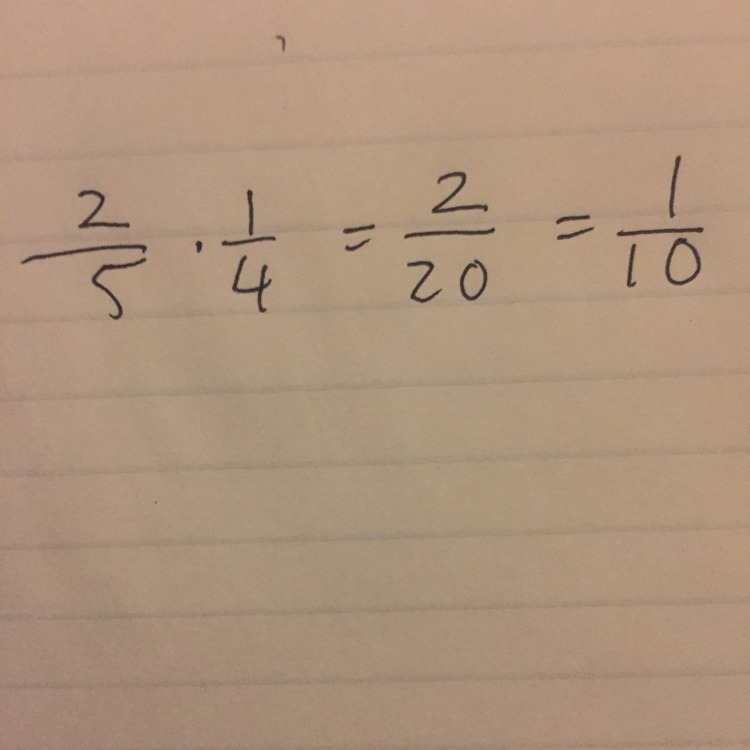 2/5 · 1/4 = 2/20 = 1/10